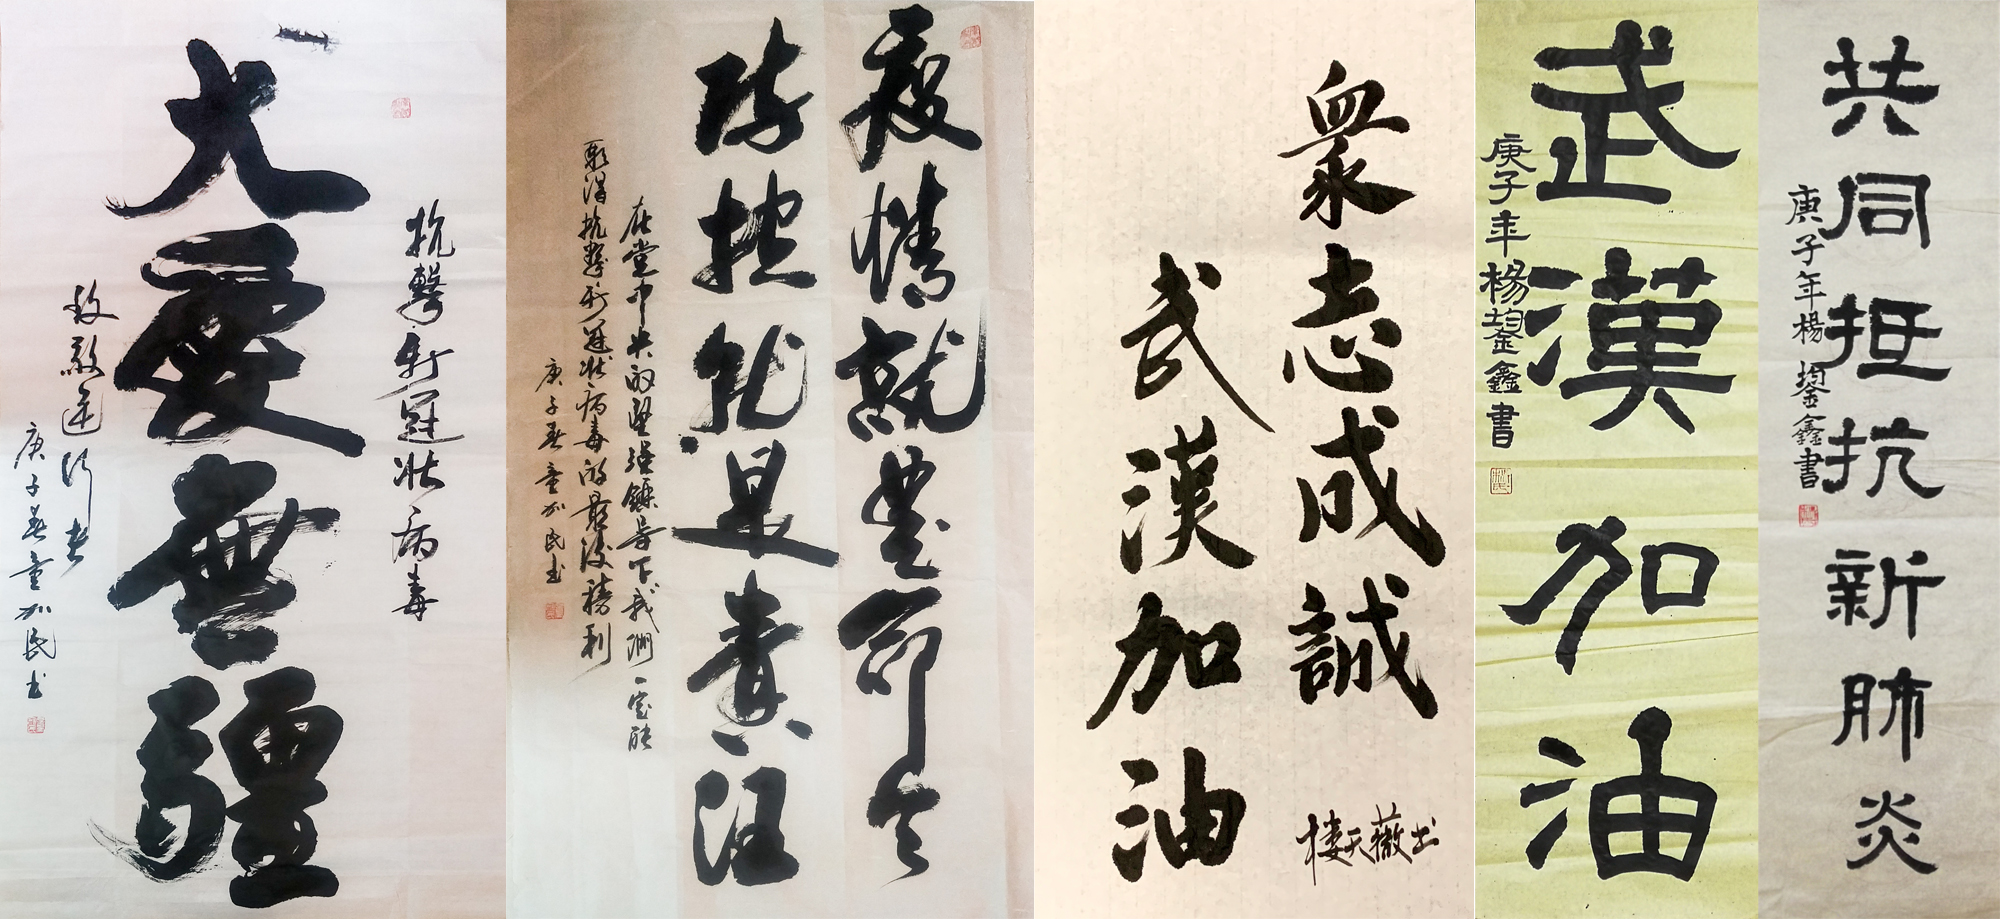 抗擊新冠状病毒
大愛無疆
致敬逆行者
庚子春童加民书
疫情就是命令
防控就是責任
在党中央的坚强领导下我们一定能
取得抗擊新冠状病毒的最後勝利
庚子春童加民书
衆志成誠
武漢加油
楼天薇书
武漢加油
庚子年楊鋆鑫書
共同抵抗新肺炎
庚子年楊鋆鑫書